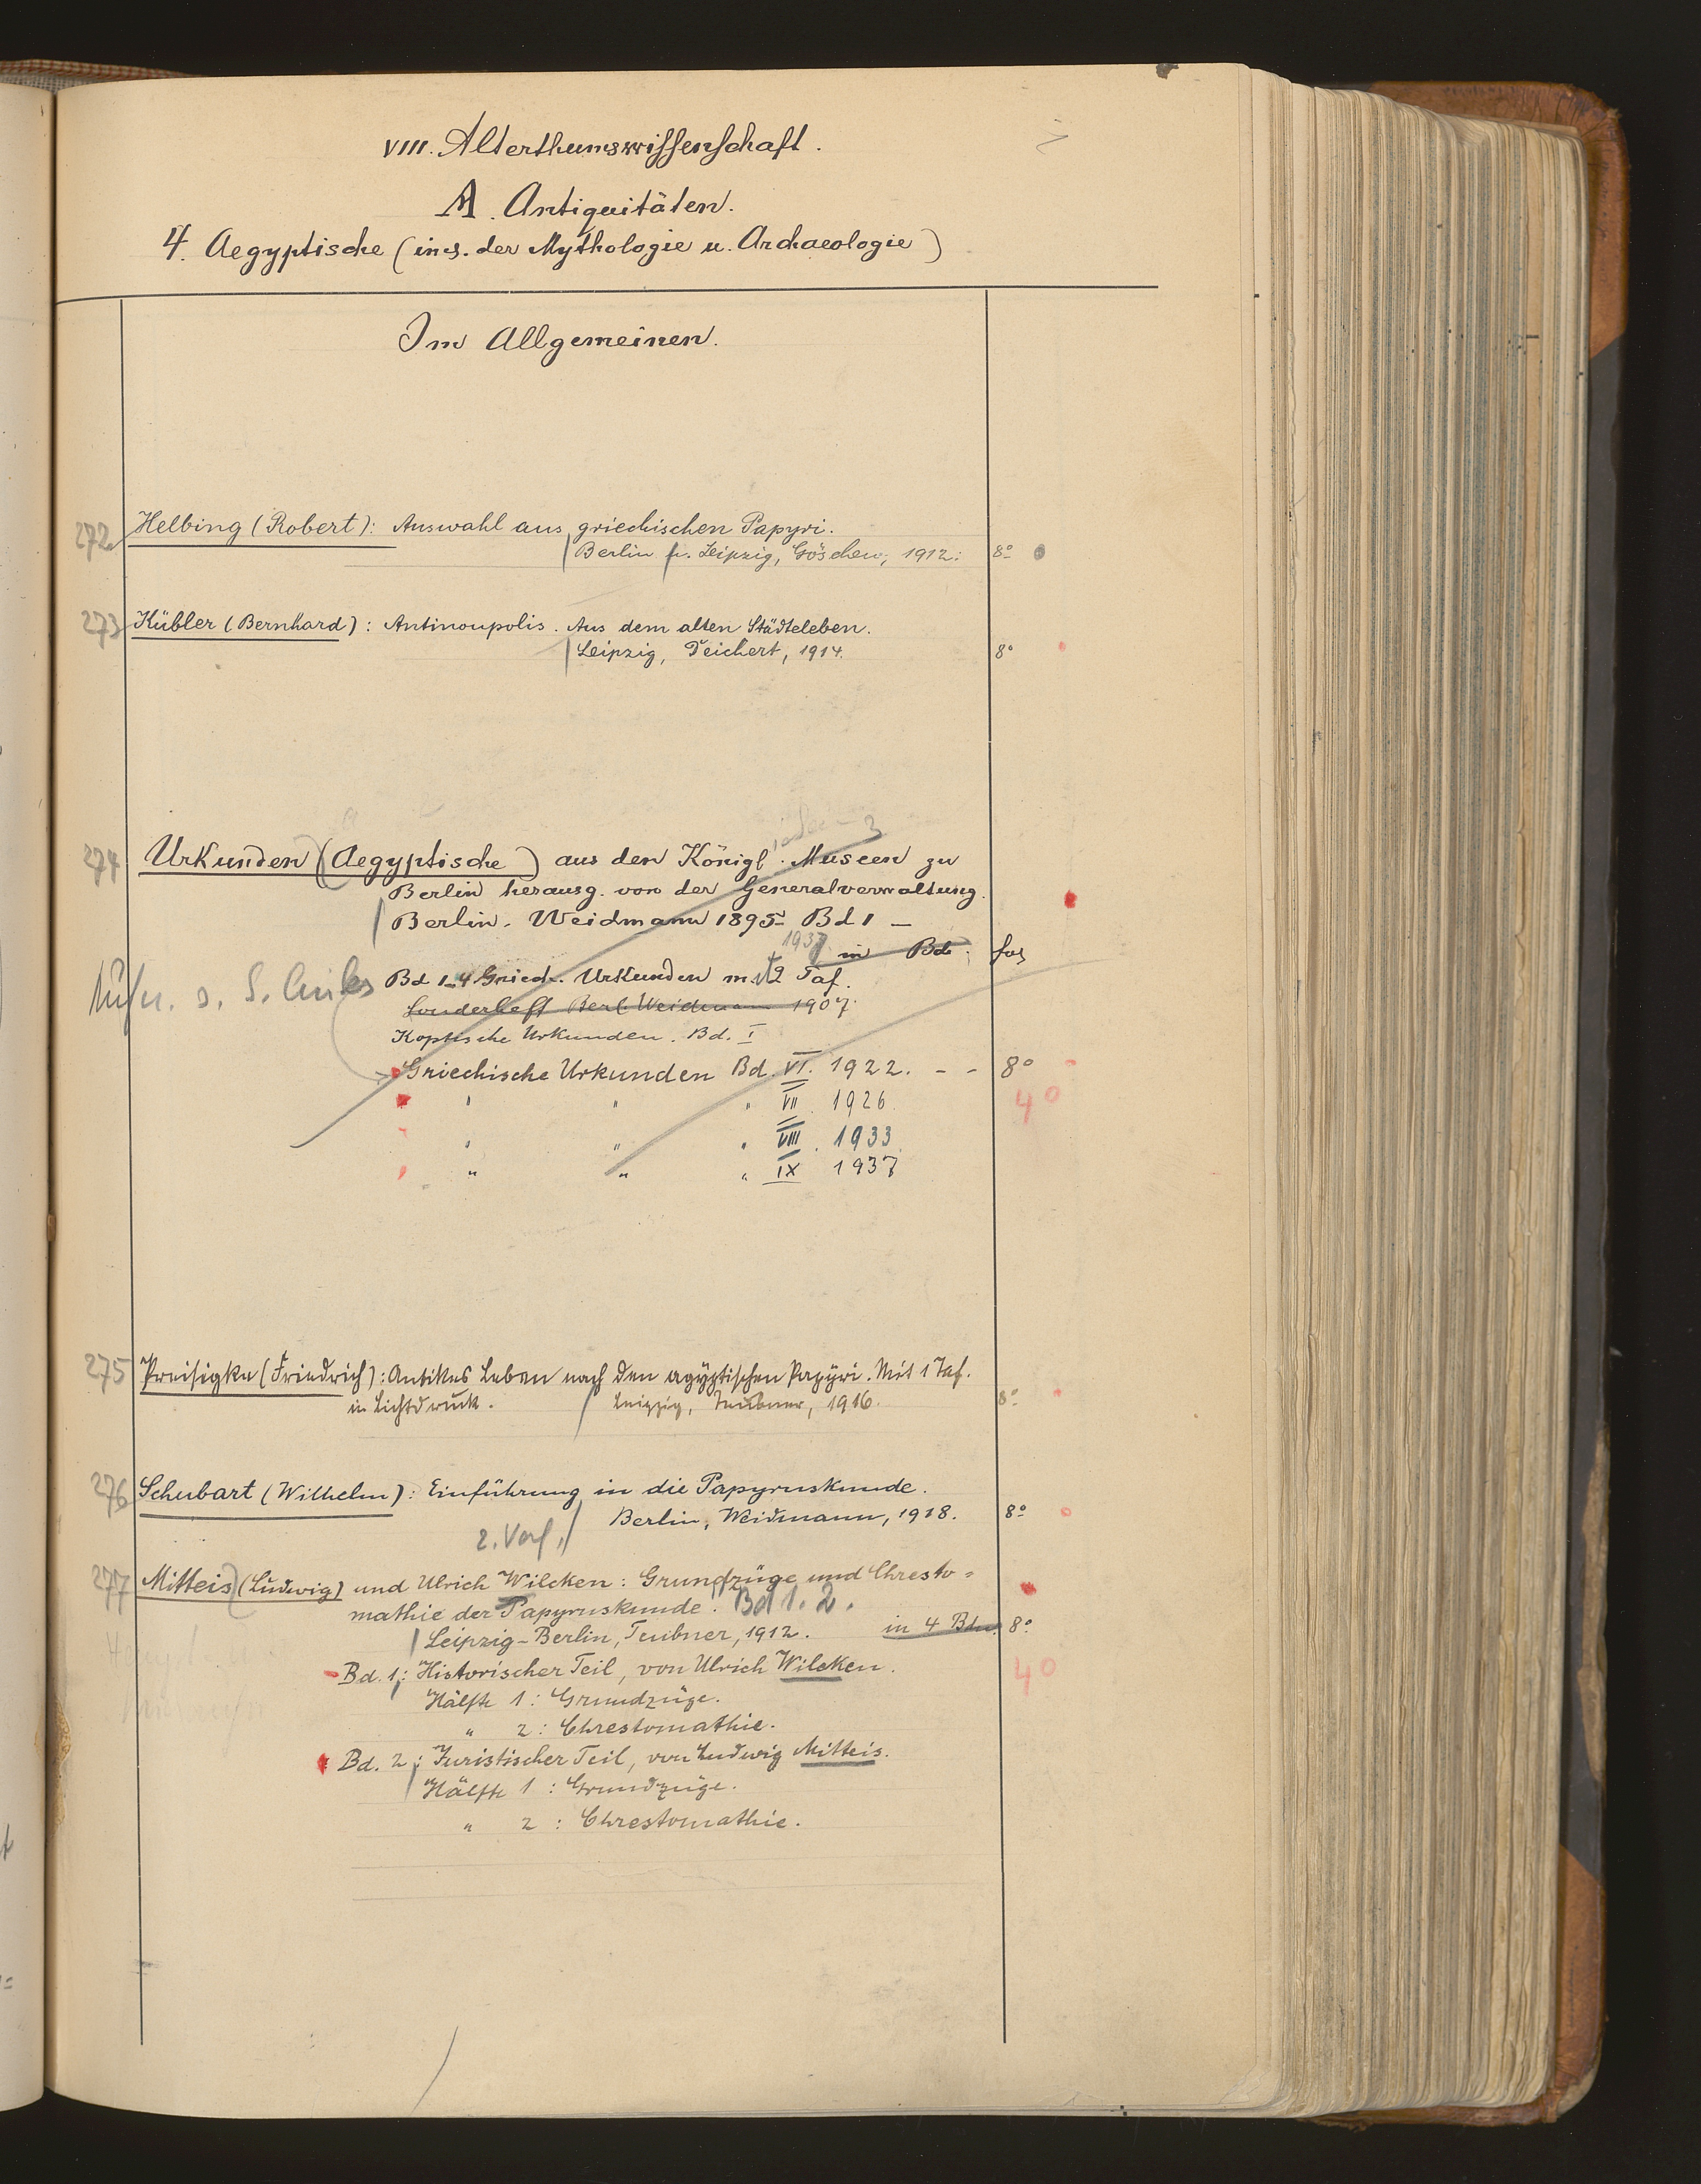 VIII. Alterthumswissenschaft.
A. Antiquitäten.
4. Aegyptische (incs. der Mythologie u. Archaeologie)
Im Allgemeinen.
272 Helbing (Robert): Auswahl aus griechischen Papyri.
Berlin u. Leipzig, Göschen, 1912. 8°
273 Kübler (Bernhard): Antinoupolis. Aus dem alten Städteleben.
Leipzig, Deichert, 1914. 8°
274 Urkunden (Aegyptische) aus den Königl. Museen zu
Berlin herausg. von der Generalverwaltung.
Berlin. Weidmann 1895 Bd 1 –
1937 in Bd. fol
Bd 1–4 Griech. Urkunden mit 2 Taf.
Sonderheft Berl. Weidmann 1907.
Koptische Urkunden. Bd. I
Griechische Urkunden Bd. VI. 1922. - - 8°
" " " VII. 1926. 4°
" " " VIII. 1933
" " " IX 1937
275 Preisigke (Friedrich): Antikes Leben nach den agyptischen Papyri. Mit 1 Taf.
in Lichtdruck. Leipzig, Teubner, 1916. 8°
276 Schubart (Wilhelm): Einführung in die Papyruskunde.
Berlin, Weidmann, 1918. 8°
277 Mitteis (Ludwig) und Ulrich Wilcken: Grundzüge und Chresto=
mathie der Papyruskunde. Bd 1. 2.
Leipzig-Berlin, Teubner, 1912. in 4 Bdn. 8°
Bd. 1: Historischer Teil, von Ulrich Wilcken. 4°
Hälfte 1: Grundzüge.
" 2: Chrestomathie.
Bd. 2: Juristischer Teil, von Ludwig Mitteis.
Hälfte 1: Grundzüge.
" 2: Chrestomathie.